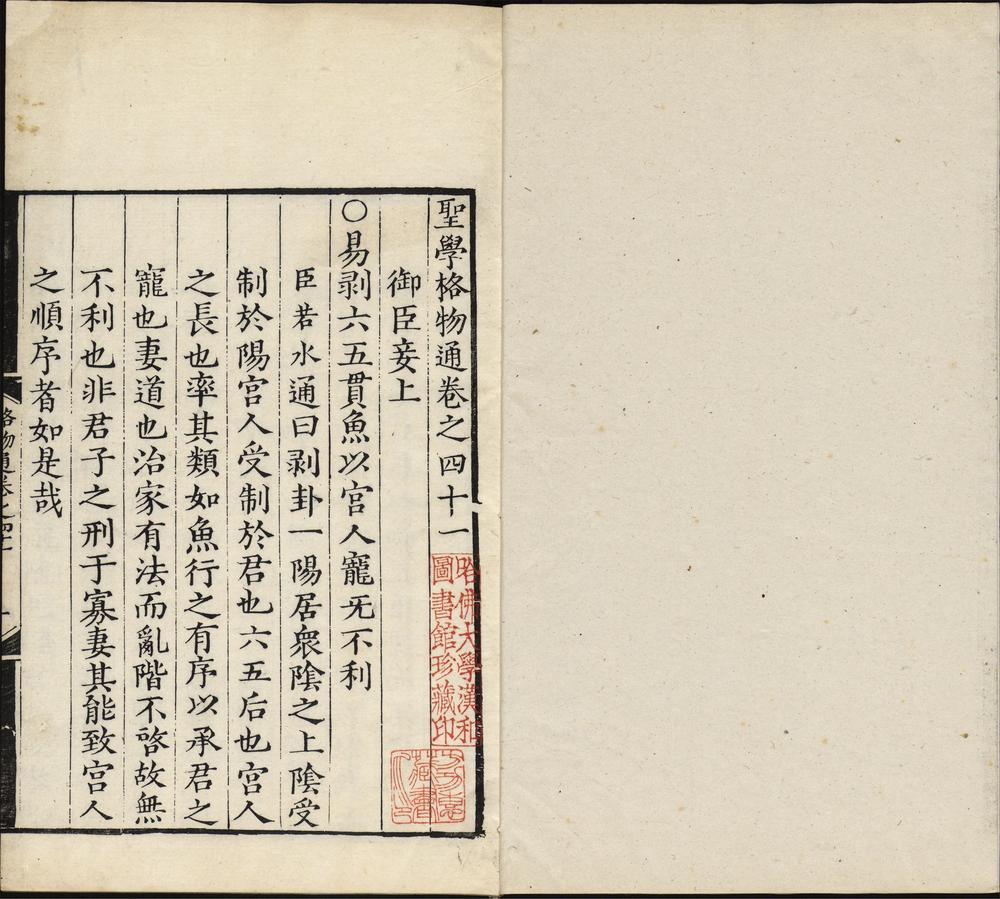 聖學格物通卷之四十一
御臣妾上
○易剥六五貫魚以宫人寵旡不利
臣若水通曰剥卦一陽居衆陰之上陰受
制於陽宫人受制於君也六五后也宫人
之長也率其類如魚行之有序以承君之
寵也妻道也治家有法而亂階不啓故無
不利也非君子之刑于寡妻其能致宫人
之順序者如是哉
格物通卷之四十一
一
哈佛大學漢和
圖書館珍藏印